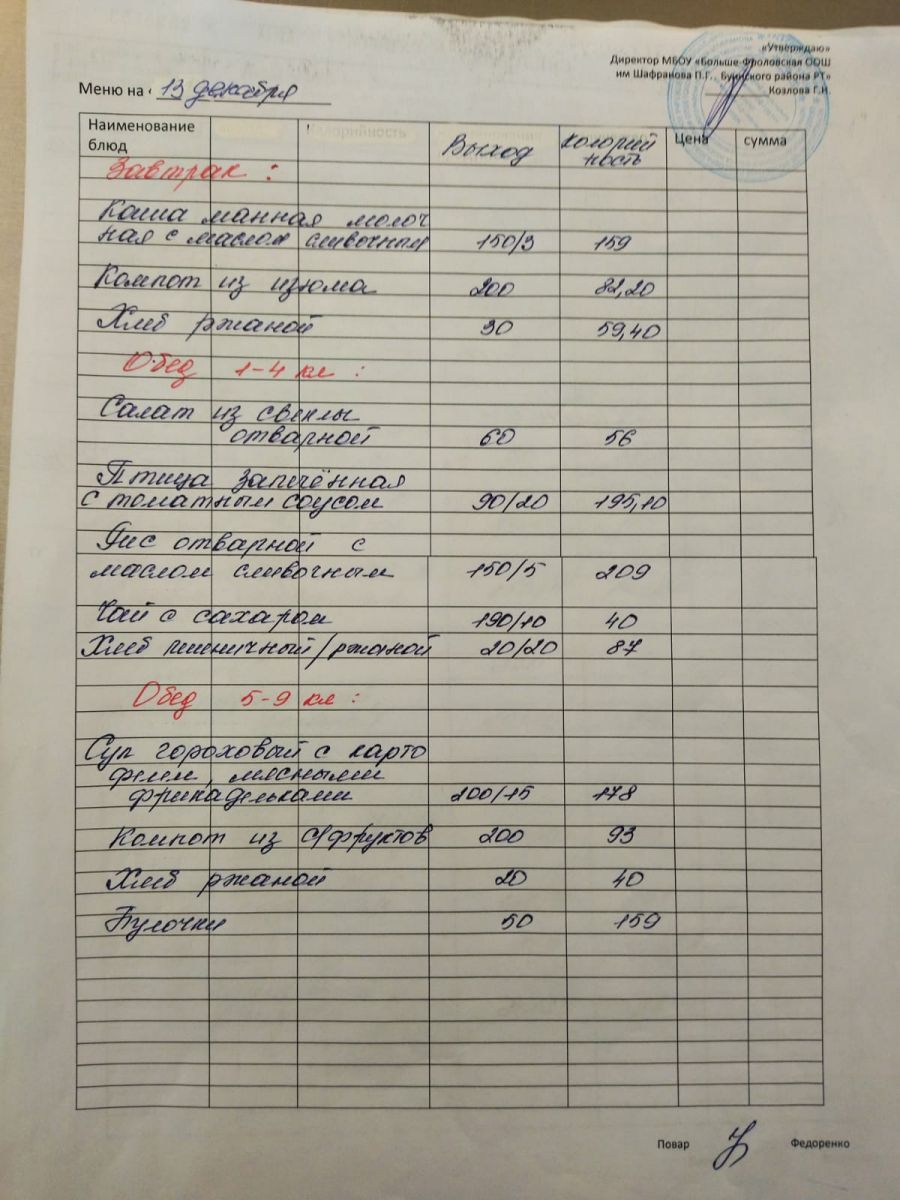 «Утверждаю»
Директор МБОУ «Больше-Фроловская ООШ
им Шафранова П.Г., Буинского района РТ»
Козлова Г.И.
Меню на 13 декабря
Наименование блюд Выход Колорий ность Цена сумма
Завтрак :
Каша манная молоч
ная с маслом сливочным 150/3 159
Компот из изюма 200 82,20
Хлеб ржаной 30 59,40
Обед 1-4 кл :
Салат из свеклы
отварной 60 56
Птица запечённая
с томатным соусом 90/20 195,10
Рис отварной с
маслом сливочным 150/5 209
Чай с сахаром 190/10 40
Хлеб пшеничный/ржаной 20/20 87
Обед 5-9 кл :
Суп гороховый с карто
фелем, мясными
фрикадельками 200/15 178
Компот из с/фруктов 200 93
Хлеб ржаной 20 40
Булочки 50 159
Повар Федоренко